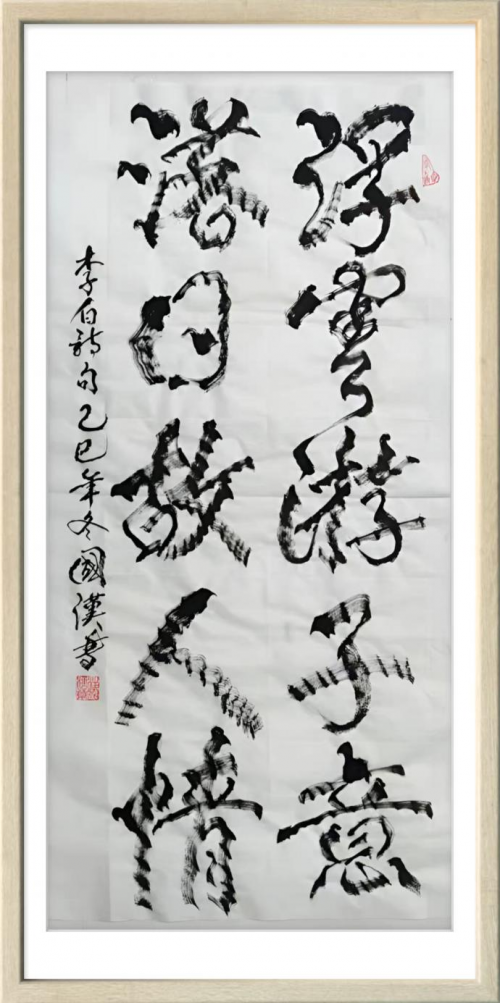 浮雲游子意
落日故人情
李白詩句乙巳年冬國漢書